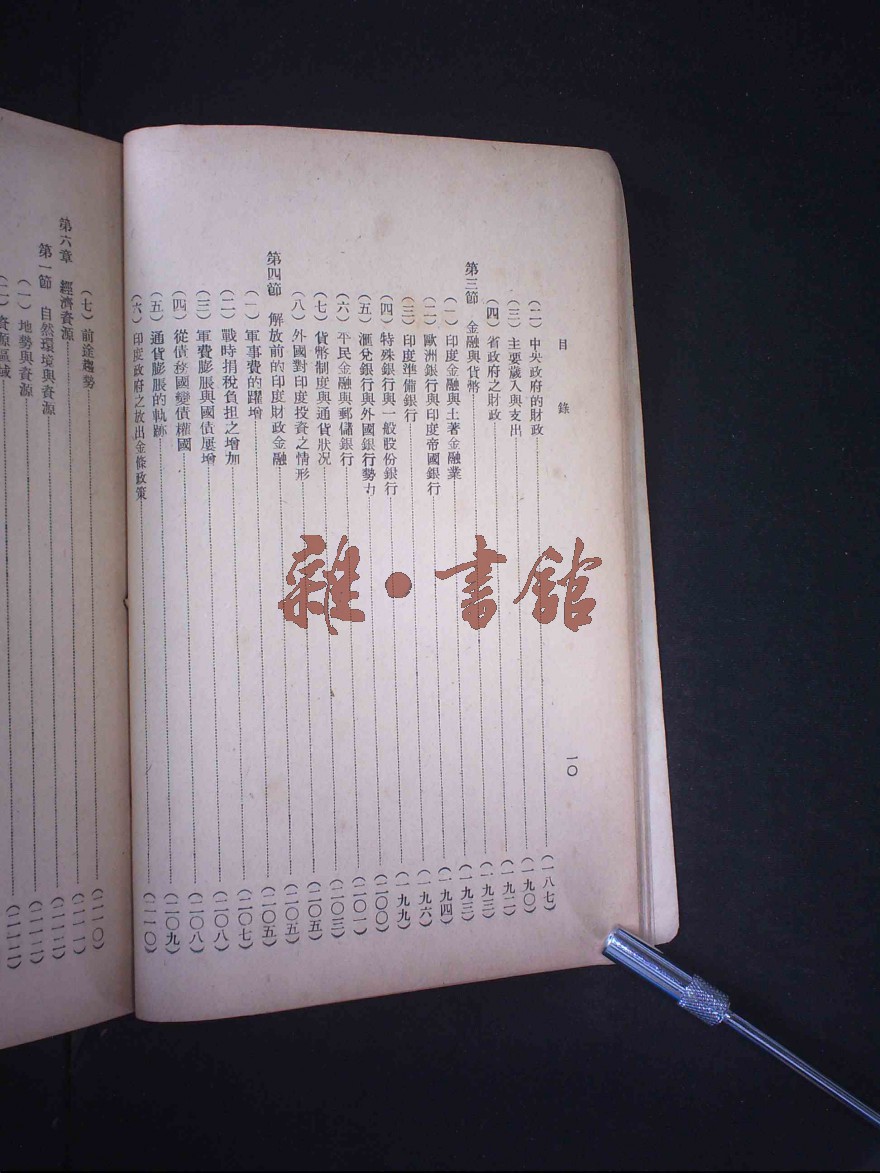 目錄
一〇
(二) 中央政府的財政……(一八七)
(三) 主要歲入與支出……(一九〇)
(四) 省政府之財政……(一九二)
第三節 金融與貨幣……(一九三)
(一) 印度金融與土著金融業……(一九三)
(二) 歐洲銀行與印度帝國銀行……(一九四)
(三) 印度準備銀行……(一九六)
(四) 特殊銀行與一般股份銀行……(一九九)
(五) 滙兌銀行與外國銀行勢力……(二〇〇)
(六) 平民金融與郵儲銀行……(二〇一)
(七) 貨幣制度與通貨狀況……(二〇三)
(八) 外國對印度投資之情形……(二〇五)
第四節 解放前的印度財政金融……(二〇五)
(一) 軍事費的躍增……(二〇五)
(二) 戰時捐稅負担之增加……(二〇七)
(三) 軍費膨脹與國債屢增……(二〇八)
(四) 從債務國變債權國……(二〇八)
(五) 通貨膨脹的軌跡……(二〇九)
(六) 印度政府之放出金條政策……(二一〇)
(七) 前途趨勢……(二一〇)
第六章 經濟資源……(二一一)
第一節 自然環境與資源……(二一二)
(一) 地勢與資源……(二一二)
(二) 資源區域……(二一二)
雜·書館